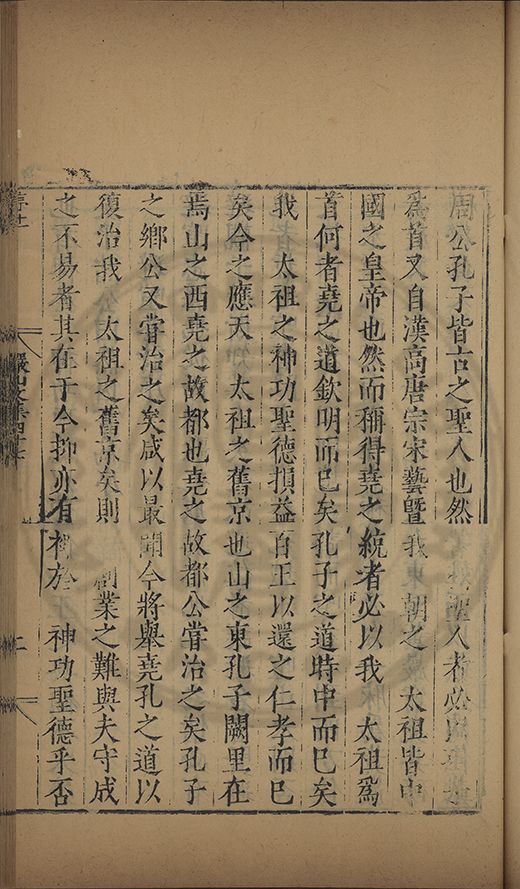 周公孔子皆古之聖人也然 聖人者必以
爲首又自漢高唐宗宋藝暨 我 朝之 太祖皆中
國之皇帝也然而稱得堯之統者必以我 太祖爲
首何者堯之道欽明而巳矣孔子之道時中而巳矣
我 太祖之神功聖德損益百王以還之仁孝而巳
矣今之應天 太祖之舊京也山之東孔子闕里在
焉山之西堯之故都也堯之故都公甞治之矣孔子
之鄉公又甞治之矣咸以最聞今將舉堯孔之道以
復治我 太祖之舊京矣則 創業之難與夫守成
之不易者其在于今抑亦有裨於 神功聖德乎否
儼山文集四十七